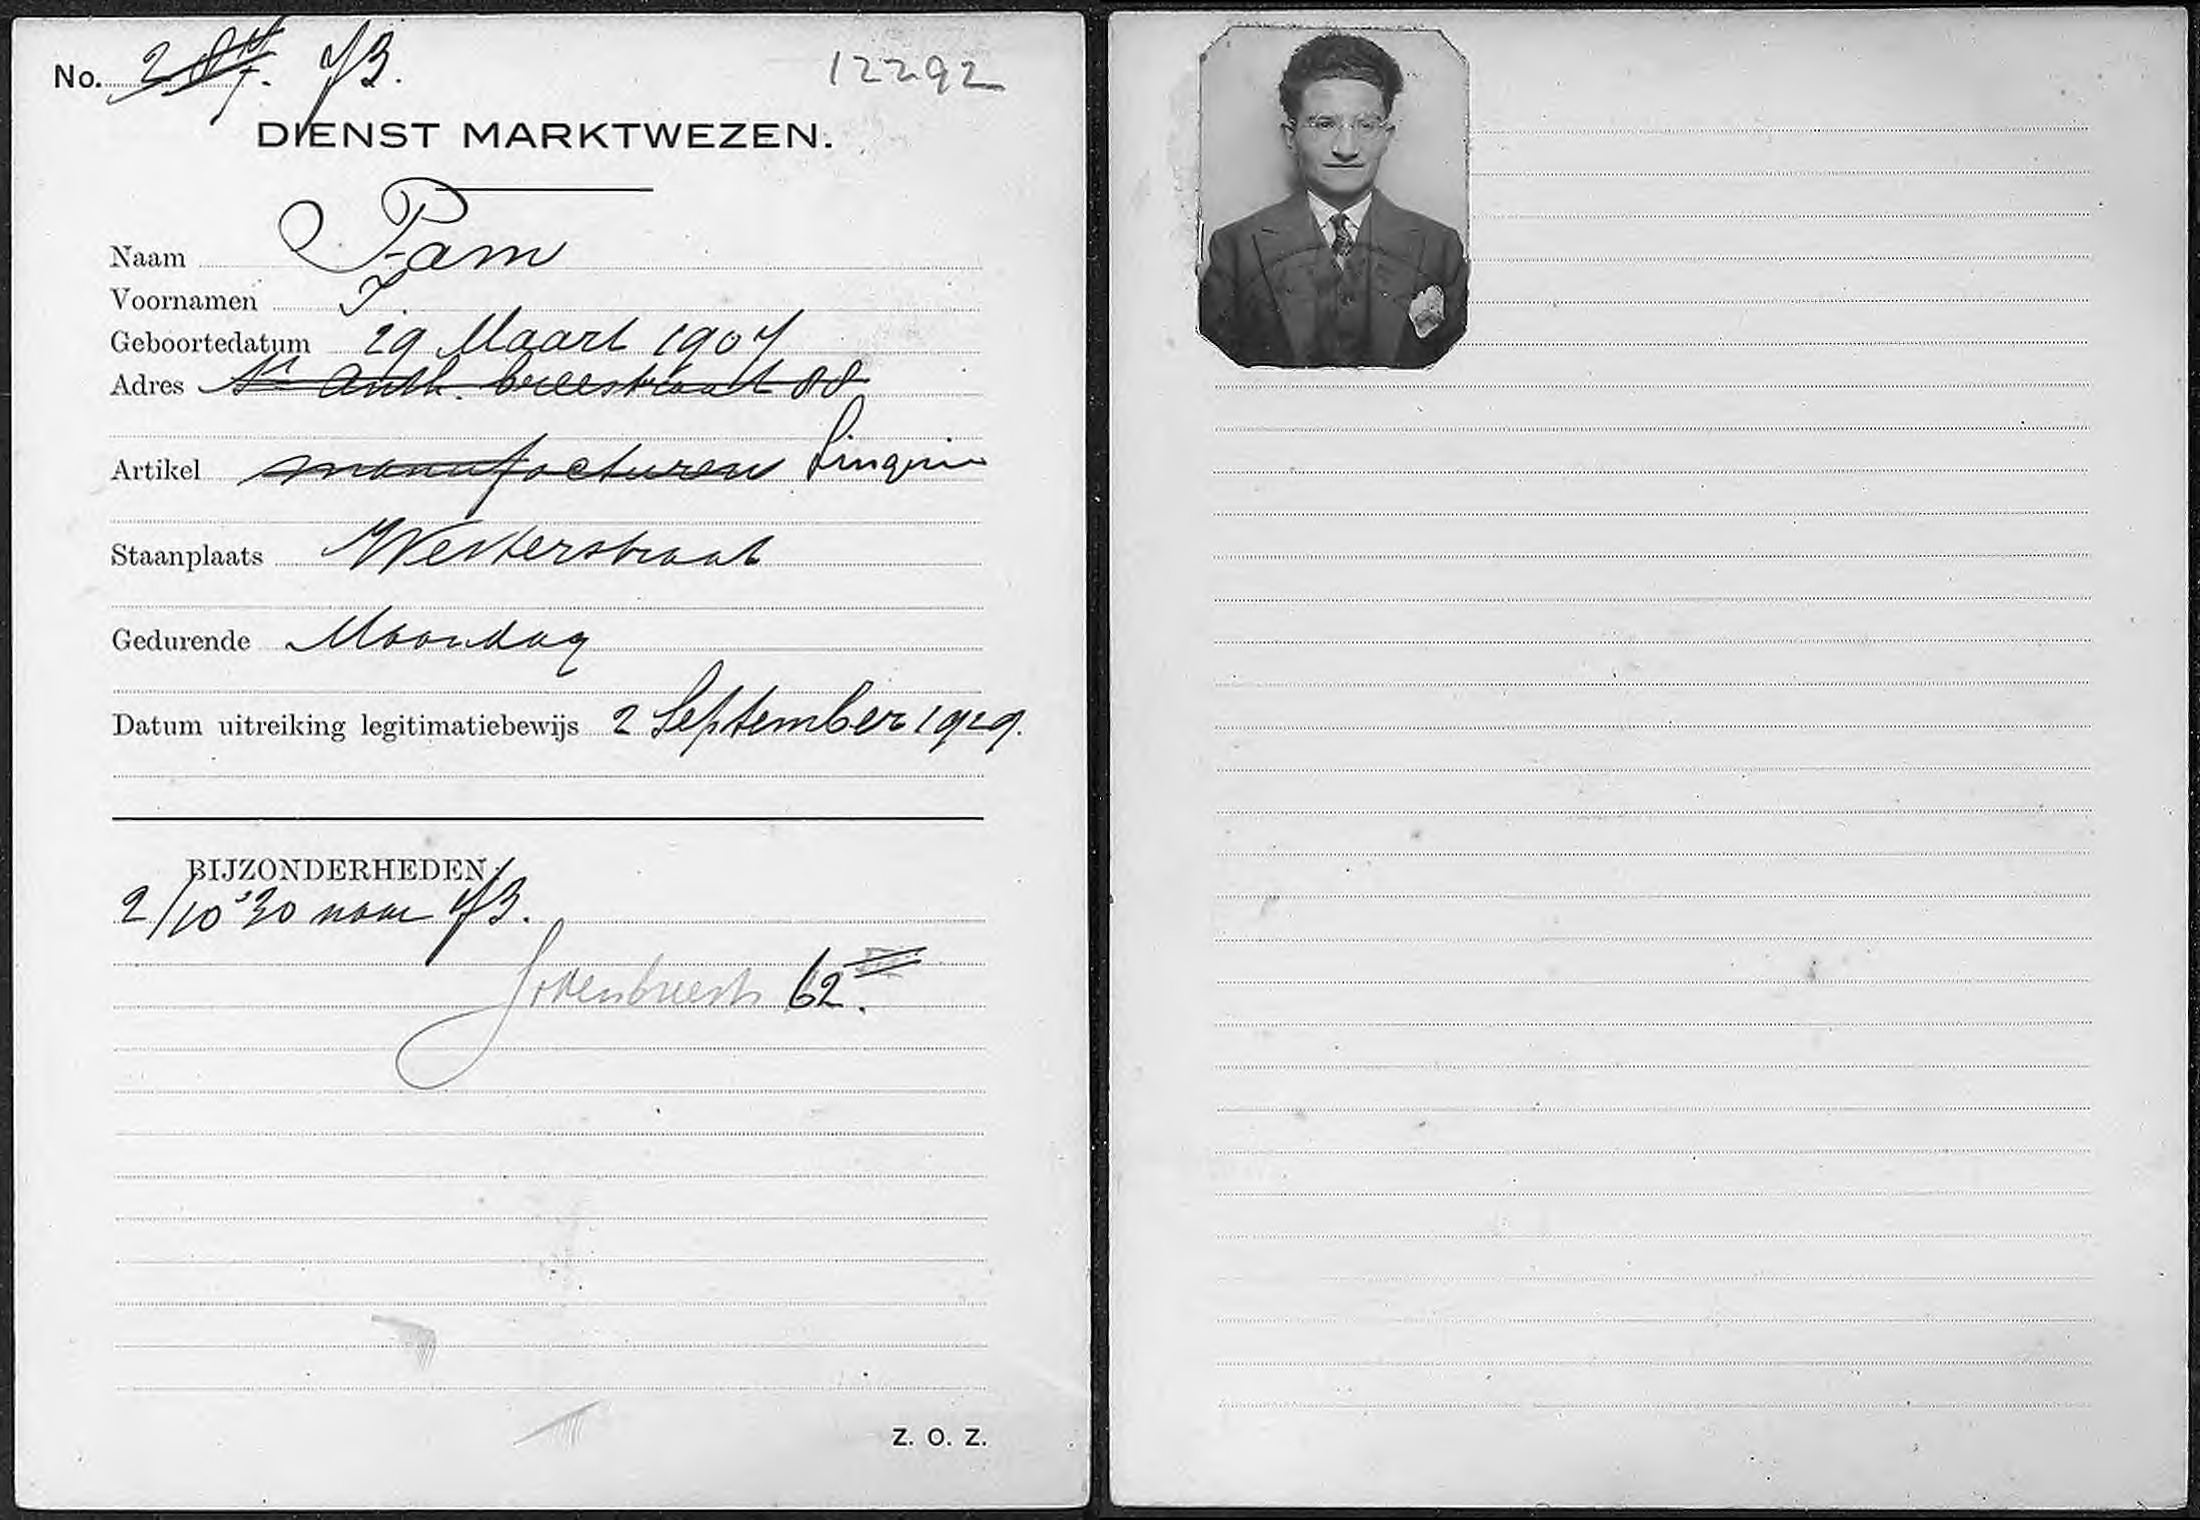 No. 287. 73. 12292
DIENST MARKTWEZEN.
Naam Pam
Voornamen I.
Geboortedatum 29 Maart 1907
Adres St Anth. breestraat 88
Artikel manufacturen Lingerie
Staanplaats Westerstraat
Gedurende Maandag
Datum uitreiking legitimatiebewijs 2 September 1929.
BIJZONDERHEDEN:
2/10 '30 naar 73.
Jodenbreestr 62 III.
Z. O. Z.